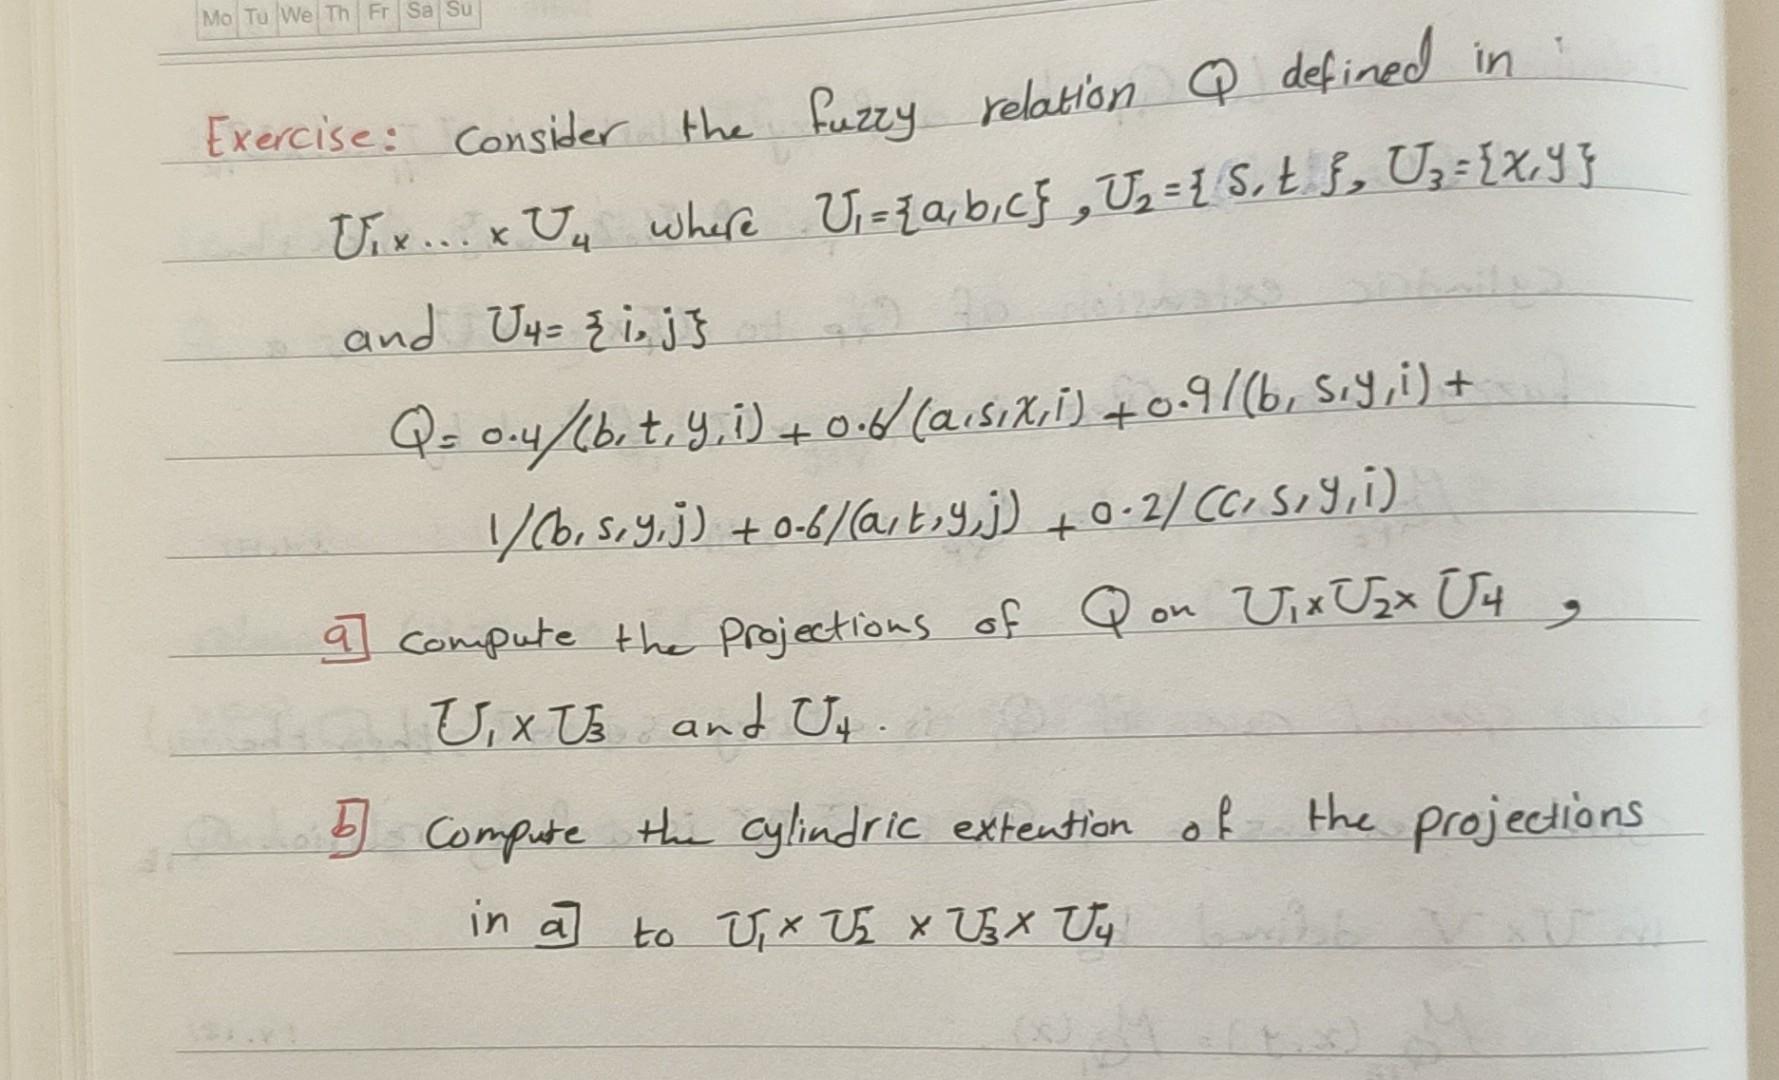 Mo Tu We Th Fr Sa Su
Exercise: Consider the fuzzy relation Q defined in
U₁ x ... x U₄ where U₁={a,b,c} , U₂={s,t}, U₃={x,y}
and U₄= {i,j}
Q= 0.4/(b,t,y,i) + 0.6/(a,s,x,i) + 0.9/(b,s,y,i) +
1/(b,s,y,j) + 0.6/(a,t,y,j) + 0.2/(c,s,y,i)
a] compute the projections of Q on U₁ x U₂ x U₄ ,
U₁ x U₃ and U₄.
b] Compute the cylindric extention of the projections
in a] to U₁ x U₂ x U₃ x U₄